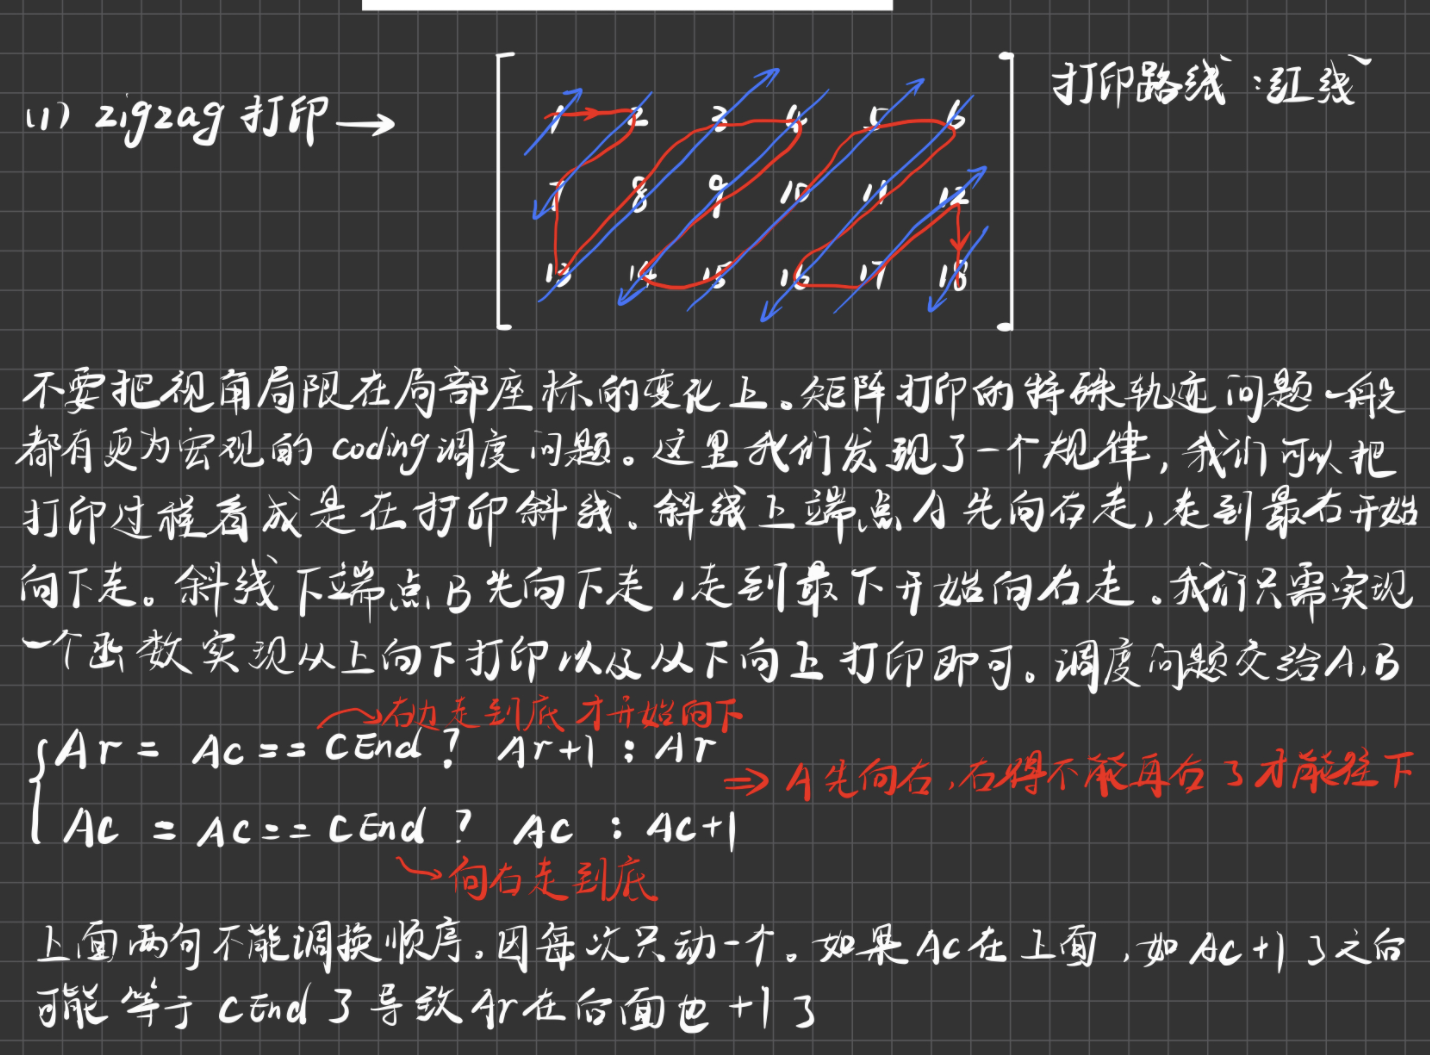 (1) zigzag 打印→
打印路线:红线
1 2 3 4 5 6
7 8 9 10 11 12
13 14 15 16 17 18
不要把视角局限在局部座标的变化上。矩阵打印的特殊轨迹问题一般
都有更为宏观的coding调度问题。这里我们发现了一个规律,我们可以把
打印过程看成是在打印斜线。斜线上端点A先向右走,走到最右开始
向下走。斜线下端点B先向下走,走到最下开始向右走。我们只需实现
一个函数实现从上向下打印以及从下向上打印即可。调度问题交给A,B
右边走到底才开始向下
Ar = Ac == CEnd ? Ar+1 : Ar
⇒ A先向右,右得不能再右了才能往下
Ac = Ac == CEnd ? Ac : Ac+1
向右走到底
上面两句不能调换顺序。因每次只动一个。如果Ac在上面,如Ac+1了之后
可能等于CEnd了导致Ar在后面也+1了